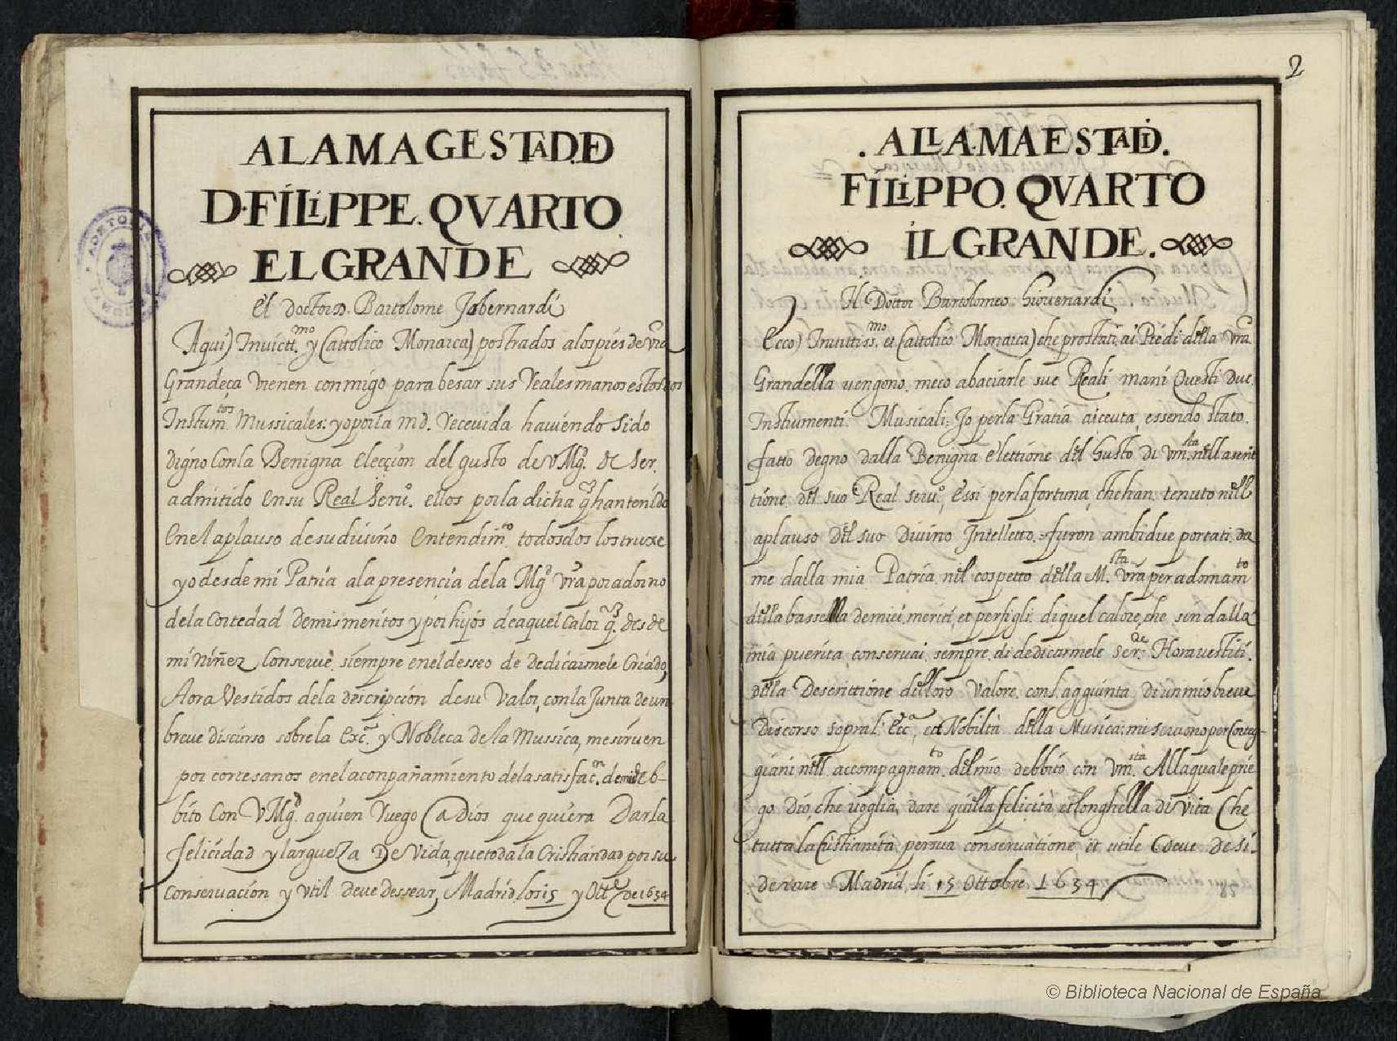 A LA MAGESTAD. DE
D. FÍLiPPE. QVARTO
EL GRANDE
El Doctor D. Bartolome Jobernardi
Aqui) Invictt.mo y (Cattolico Monarca) postrados a los pies de vra
Grandeça vienen conmigo para besar sus reales manos estos dos
Instrum.tos Mussicales: yo por la md. recevida haviendo sido
digno con la Benigna elecçion del gusto de V Mg.d de ser
admitido en su Real seru.o ellos por la dicha q han tenido
En el aplauso de su diuino Entendim.to todos dos los truxe
yo desde mi Patria a la presencia de la Mg.d vra por adorno
de la Cortedad de mis meritos y por hijos de aquel Calor q. desde
mi Niñez conserue siempre en el desseo de Dedicarmele Criado,
Aora Vestidos de la descripción de su Valor, con la Junta de un
breve discurso sobre la Exc.a y Nobleca de la Mussica, me siruen
por cortesanos en el aconpañamiento de la satisfac.on de mi de b-
bito Con V Mg.d a quien ruego (a Dios que quiera Dar la
felicidad y largueza De Vida que toda la Cristiandad por su
Conservación y util deve dessear, Madrid los 15 y Ott.e de 1634
2
. ALLA. MAESTAD.
FÍLiPPO. QVARTO
ÍL GRANDE.
Il Dottor Bartolomeo Giovenardi
Ecco) Inuittiss.mo et (Cattolico Monarca) che prostrati ai Piedi della vra
Grandella uengono meco abaciarle sue Reali mani Questi due
Instrumenti Musicali; Io per la Gratia riceuta essendo stato
fatto degno dalla Benigna elettione del Gusto di Vm.sta nell asent
tione del suo Real seru.o Essi per la fortuna, che han tenuto nell
aplauso del suo Diuino Intelletto, furon ambidue portati da
me dalla mia Patria nel cospetto della M.sta vra per adornam.to
della bassella de miei meriti et per figli di quel calore che sin dalla
mia pueritia conseruai sempre di dedicarmele ser.de Hora vestiti
della Descrittione del loro Valore, cons. aggiunta di un mio breue
Discorso sopra l' Ecc.a et Nobiltà della Musica; mi seruono per Corteg-
giani nell accompagnam.to del mio debbito con Vm.stà Alla quale prie
go Dio, che voglia dare quella felicità et longhella di Vita Che
tutta la Cristianità per sua conseruatione et utile Deue De si-
derare Madrid, li 15 Ottobre 1634
© Biblioteca Nacional de España